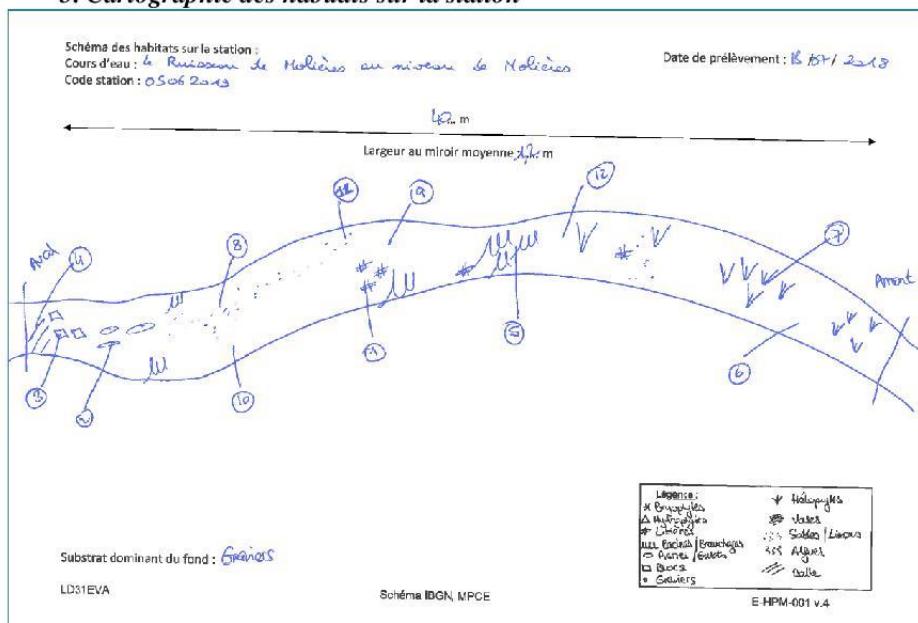 3. Cartographie des habitats sur la station
Schéma des habitats sur la station :
Cours d'eau : Le Ruisseau de Molières au niveau de Molières
Code station : 05062013
Date de prélèvement : /2018
40 m
Largeur au miroir moyenne m
Aval
4
8
11
9
12
7
Amont
3
2
10
1
5
6
Légende :
Bryophytes
Hydrophytes
Litières
Racines / Branchages
Pierres / Galets
Blocs
Graviers
Hélophytes
Vases
Sables / Limons
Algues
Dalle
Substrat dominant du fond : Graviers
LD31EVA
Schéma IBGN, MPCE
E-HPM-001 v.4